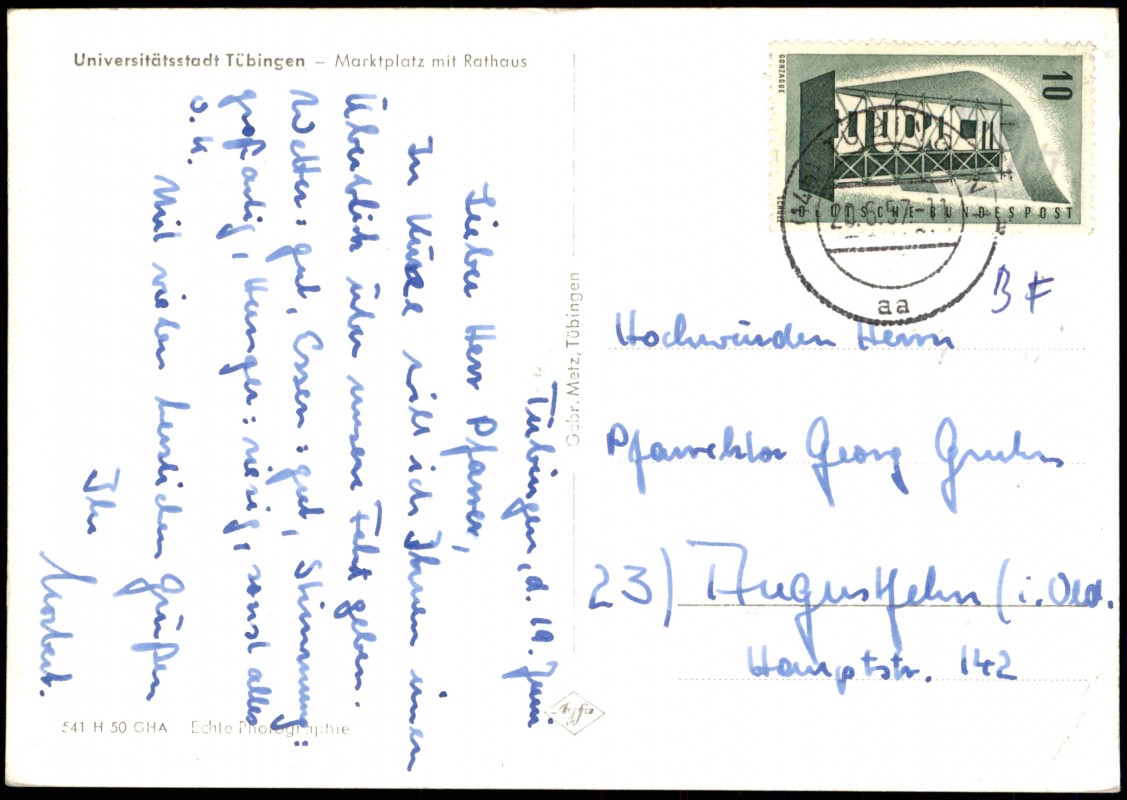 Universitätsstadt Tübingen – Marktplatz mit Rathaus
Tübingen, d. 19. Juni.
Lieber Herr Pfarrer,
In Kürze will ich Ihnen einen
Überblick über unsere Fahrt geben.
Wetter: gut, Essen: gut, Stimmung:
großartig, Hunger: riesig, sonst alles
o. k.
Mit vielen herzlichen Grüßen
Ihr
Norbert.
541 H 50 GHA Echte Photographie
Gebr. Metz, Tübingen
GONZAGUE
10
EUROPA
DEUTSCHE BUNDESPOST
20.6.57-11
aa
B F
Hochwürden Herrn
Pfarrektor Georg
23) Augustfehn (i. Old.
Hauptstr. 142